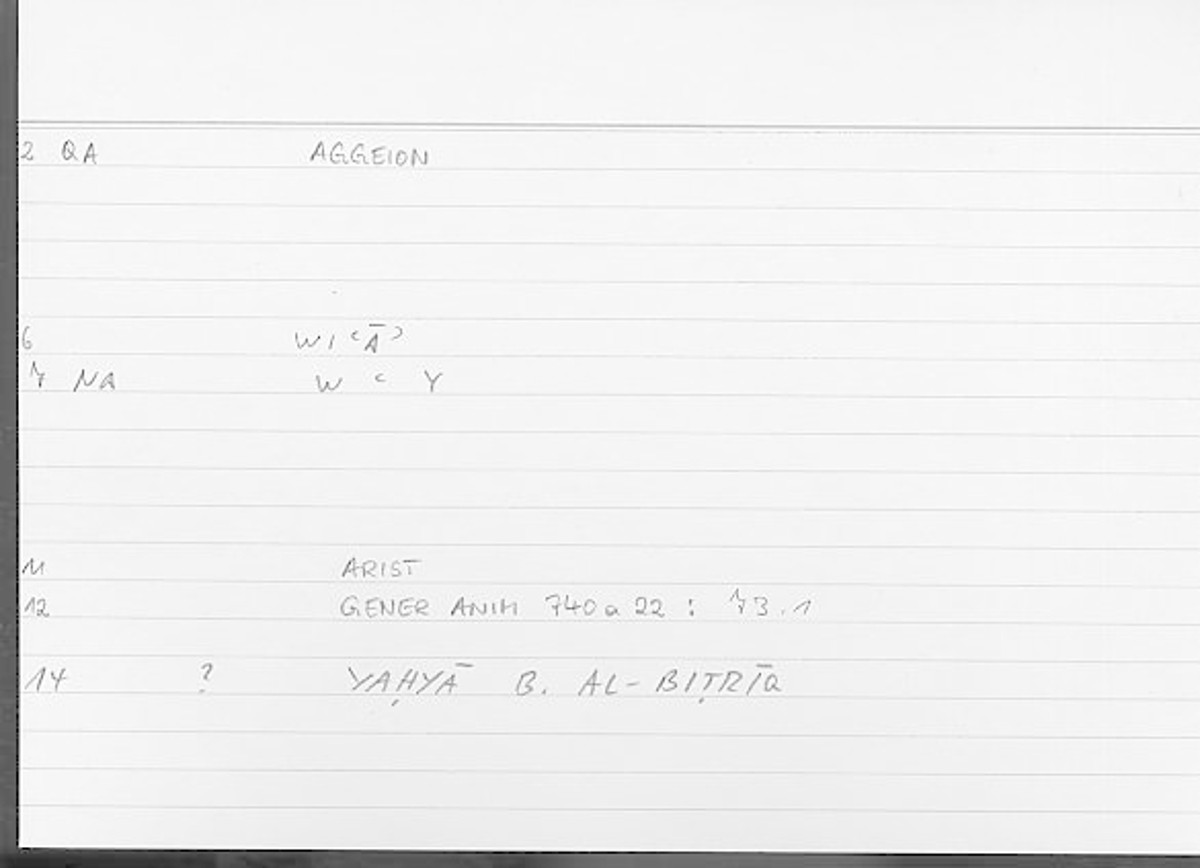 2 QA AGGEION
6 WIʿĀʾ
7 NA W ʿ Y
11 ARIST
12 GENER ANIM 740a22 : 73.1
14 ? YAḤYĀ B. AL-BIṬRĪQ